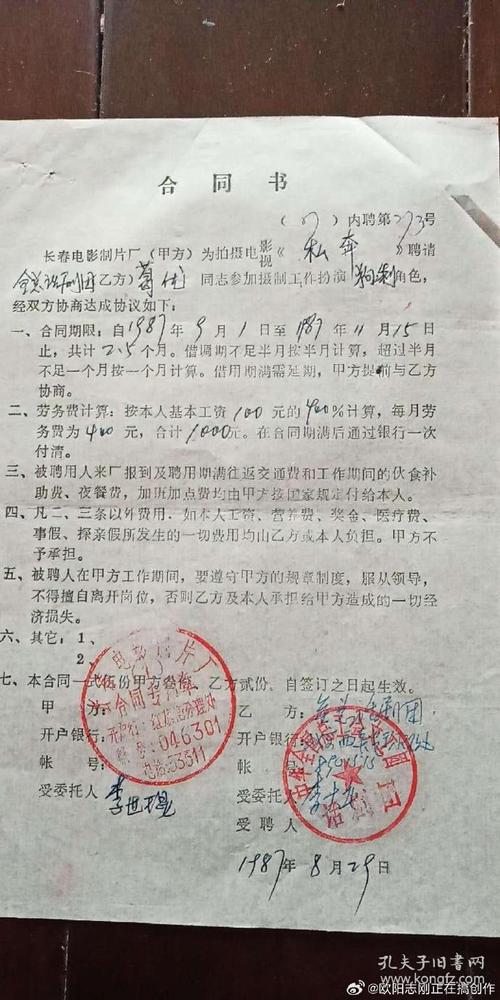 合同书
(87)内聘第273号
长春电影制片厂(甲方)为拍摄电影视《私奔》聘请
全总话剧团乙方)葛优同志参加摄制工作扮演角色,
经双方协商达成协议如下:
一、合同期限:自1987年9月1日至1987年11月15日
止,共计2.5个月。借调期不足半月按半月计算,超过半月
不足一个月按一个月计算。借用期满需延期,甲方提前与乙方
协商。
二、劳务费计算:按本人基本工资100元的400%计算,每月劳
务费为400元,合计1000元。在合同期满后通过银行一次
付清。
三、被聘用人来厂报到及聘用期满往返交通费和工作期间的伙食补
助费、夜餐费,加班加点费均由甲方按国家规定付给本人。
四、凡二、三条以外费用.如本人工资、营养费、奖金、医疗费、
事假、探亲假所发生的一切费用均由乙方或本人负担。甲方不
予承担。
五、被聘人在甲方工作期间,要遵守甲方的规章制度,服从领导,
不得擅自离开岗位,否则乙方及本人承担给甲方造成的一切经
济损失。
六、其它:1、
2、
七、本合同一式伍份甲方叁份,乙方贰份,自签订之日起生效。
甲方:
乙方:全总话剧团
开户银行:
开户银行:
帐号:
帐号:
受委托人
受委托人
受聘人
1987年8月29日
电影制片厂
合同专用章
046301
电话:53311
话剧团
孔夫子旧书网
www.kongfz.com
@欧阳志刚正在搞创作